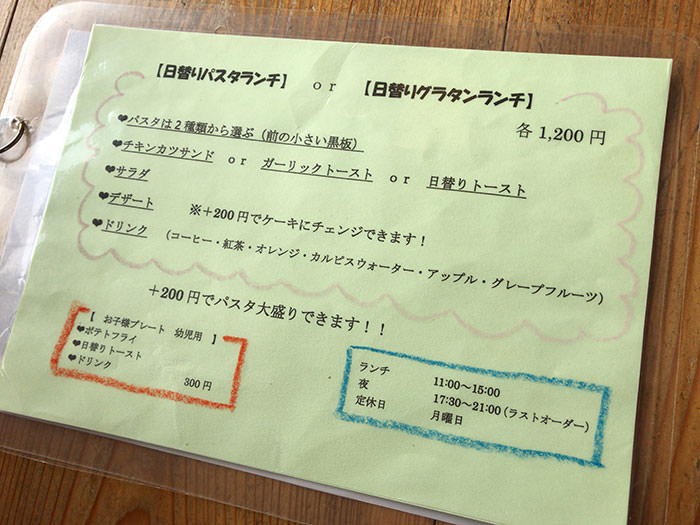 【日替りパスタランチ】 or 【日替りグラタンランチ】
各 1,200 円
❤パスタは2種類から選ぶ（前の小さい黒板）
❤チキンカツサンド or ガーリックトースト or 日替りトースト
❤サラダ
❤デザート ※＋200 円でケーキにチェンジできます！
❤ドリンク （コーヒー・紅茶・オレンジ・カルピスウォーター・アップル・グレープフルーツ）
＋200 円でパスタ大盛りできます！！
【 お子様プレート 幼児用 】
❤ポテトフライ
❤日替りトースト
❤ドリンク
300 円
ランチ 11:00～15:00
夜 17:30～21:00（ラストオーダー）
定休日 月曜日